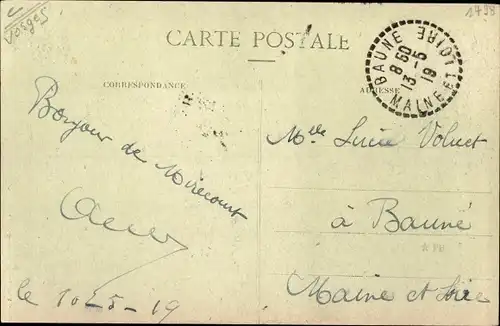 Vosges
1498
CARTE POSTALE
CORRESPONDANCE
ADRESSE
BAUNE MAINE-ET-LOIRE
8 50
13 - 5
19
Bonjour de Mirecourt
le 10-5-19
Melle Lucie Voluet
à Bauné
Maine et Loire